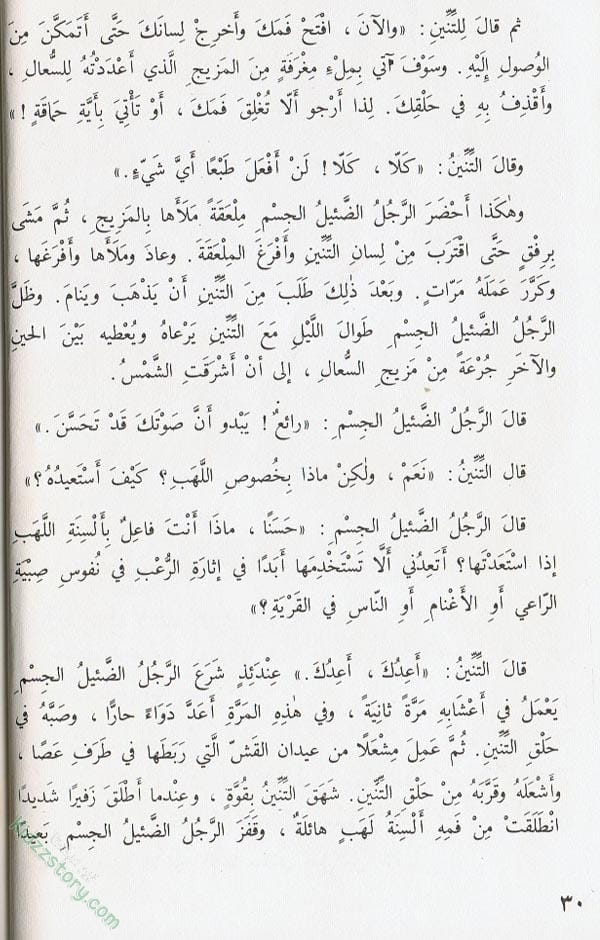 ثم قالَ لِلتِّنِّينِ: «والآنَ ، افْتَحْ فَمَكَ وأَخرِجْ لِسانَكَ حَتَّى أَتَمَكَّنَ مِنَ
الوُصولِ إِلَيْهِ. وسَوْفَ آتي بِمِلْءِ مِغْرَفَةٍ مِنَ المَزيجِ الَّذي أَعْدَدْتُهُ لِلسُّعالِ ،
وأَقْذِفُ بِهِ في حَلْقِكَ. لِذا أَرْجو أَلّا تُغْلِقَ فَمَكَ ، أَوْ تَأْتِيَ بِأَيَّةِ حَماقَةٍ !»
وقالَ التِّنِّينُ: «كَلّا ، كَلّا! لَنْ أَفْعَلَ طَبْعًا أَيَّ شَيْءٍ.»
وهٰكَذا أَحْضَرَ الرَّجُلُ الضَّئيلُ الجِسْمِ مِلْعَقَةً مَلَأَها بِالمَزيجِ ، ثُمَّ مَشَى
بِرِفْقٍ حَتَّى اقْتَرَبَ مِنْ لِسانِ التِّنِّينِ وأَفْرَغَ المِلْعَقَةَ. وعادَ ومَلَأَها وأَفْرَغَها ،
وكَرَّرَ عَمَلَهُ مَرّاتٍ. وبَعْدَ ذٰلِكَ طَلَبَ مِنَ التِّنِّينِ أَنْ يَذْهَبَ ويَنامَ. وظَلَّ
الرَّجُلُ الضَّئيلُ الجِسْمِ طَوالَ اللَّيْلِ مَعَ التِّنِّينِ يَرْعاهُ ويُعْطيه بَيْنَ الحينِ
والآخَرِ جُرْعَةً مِنْ مَزيجِ السُّعالِ ، إلى أنْ أَشْرَقَتِ الشَّمْسُ.
قالَ الرَّجُلُ الضَّئيلُ الجِسْمِ: «رائعٌ! يَبْدو أَنَّ صَوْتَكَ قَدْ تَحَسَّنَ.»
قال التِّنِّينُ: «نَعَمْ ، ولٰكِنْ ماذا بِخُصوصِ اللَّهَبِ؟ كَيْفَ أَسْتَعيدُهُ؟»
قالَ الرَّجُلُ الضَّئيلُ الجِسْمِ: «حَسَنًا ، ماذَا أَنْتَ فاعِلٌ بِأَلْسِنَةِ اللَّهَبِ
إذا اسْتَعَدْتَها؟ أَتَعِدُني أَلَّا تَسْتَخْدِمَها أَبَدًا في إثارَةِ الرُّعْبِ في نُفوسِ صِبْيَةِ
الرّاعي أَوِ الأَغْنامِ أَوِ النّاسِ في القَرْيَةِ؟»
قالَ التِّنِّينُ: «أَعِدُكَ ، أَعِدُكَ.» عِنْدَئِذٍ شَرَعَ الرَّجُلُ الضَّئيلُ الجِسْمِ
يَعْمَلُ في أَعْشابِهِ مَرَّةً ثانِيَةً ، وفي هٰذِهِ المَرَّةِ أَعَدَّ دَوَاءً حارًّا ، وصَبَّهُ في
حَلْقِ التِّنِّينِ. ثُمَّ عَمِلَ مِشْعَلًا من عيدانِ القَشّ الَّتي رَبَطَها في طَرَفِ عَصًا ،
وأَشْعَلَهُ وقَرَّبَهُ مِنْ حَلْقِ التِّنِّينِ. شَهَقَ التِّنِّينُ بِقُوَّةٍ ، وعِنْدما أَطْلَقَ زَفيرًا شَديدًا
انْطَلَقَتْ مِنْ فَمِهِ أَلْسِنَةُ لَهَبٍ هائلَةٌ ، وقَفَزَ الرَّجُلُ الضَّئيلُ الجِسْمِ بَعيدًا
٣٠